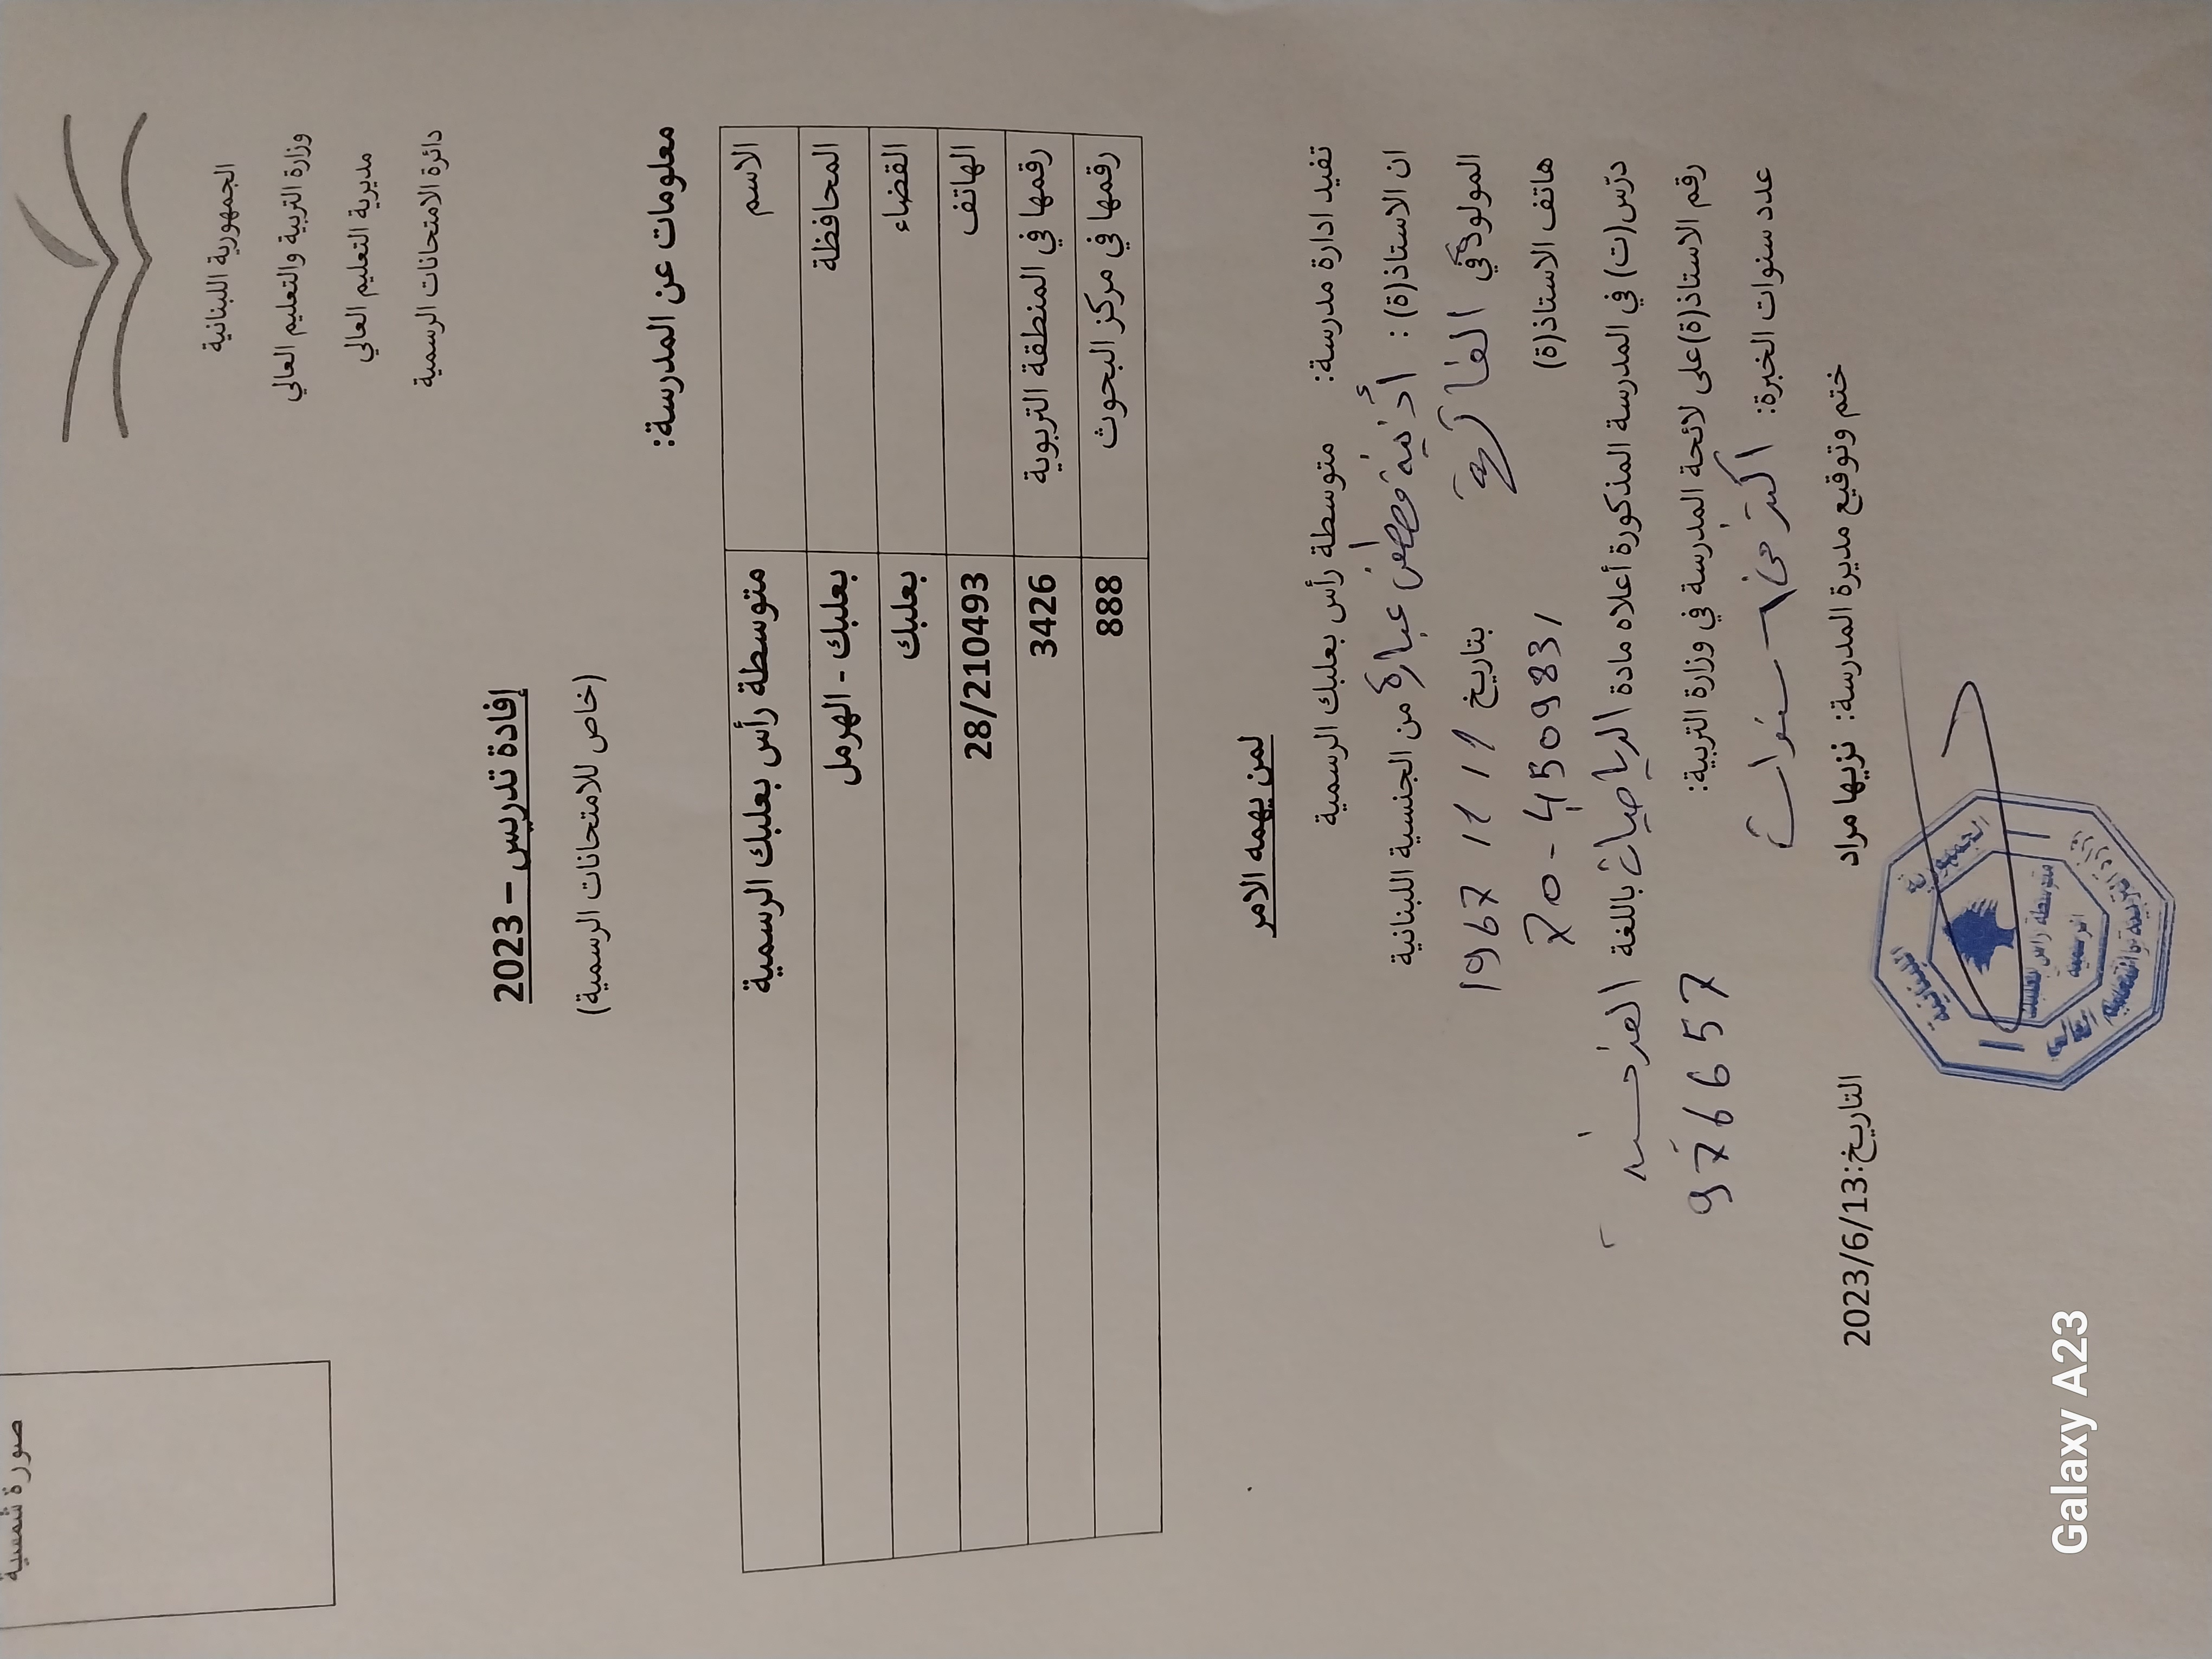 صورة شمسية
الجمهورية اللبنانية
وزارة التربية والتعليم العالي
مديرية التعليم العالي
دائرة الامتحانات الرسمية
إفادة تدريس – 2023
(خاص للامتحانات الرسمية)
معلومات عن المدرسة:
الاسم متوسطة رأس بعلبك الرسمية
المحافظة بعلبك - الهرمل
القضاء بعلبك
الهاتف 28/210493
رقمها في المنطقة التربوية 3426
رقمها في مركز البحوث 888
لمن يهمه الامر
تفيد ادارة مدرسة: متوسطة رأس بعلبك الرسمية
ان الاستاذ(ة): من الجنسية اللبنانية
المولود في بتاريخ 1967
هاتف الاستاذ(ة) 70-450983
درّس(ت) في المدرسة المذكورة أعلاه مادة الرياضيات باللغة
رقم الاستاذ(ة) على لائحة المدرسة في وزارة التربية: 976657
عدد سنوات الخبرة: أكثر من سنوات
ختم وتوقيع مديرة المدرسة: نزيها مراد التاريخ:2023/6/13
الجمهورية اللبنانية
متوسطة راس بعلبك
الرسمية
Galaxy A23